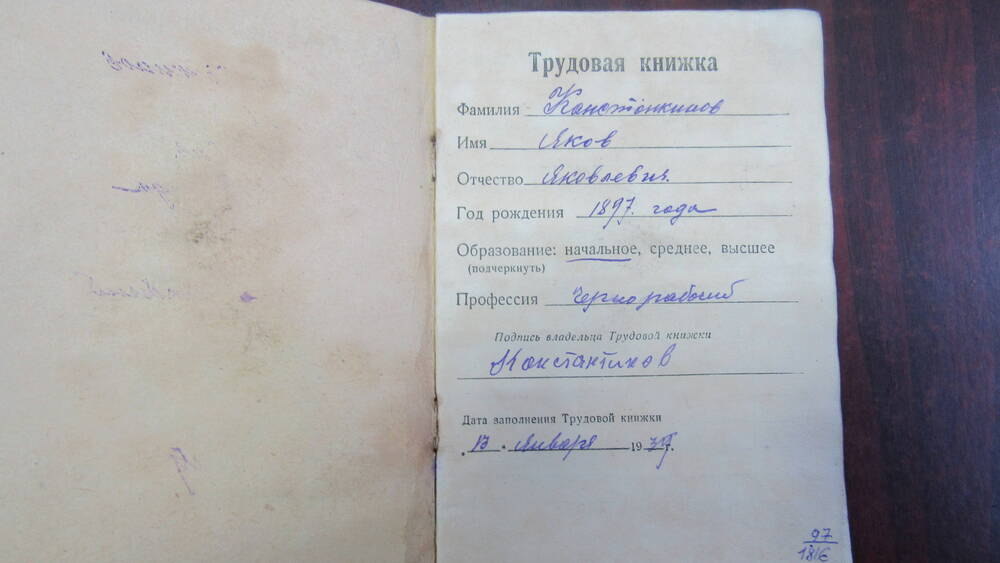 Трудовая книжка
Фамилия Констонкинов
Имя Яков
Отчество Яковлевич
Год рождения 1897. года
Образование: начальное, среднее, высшее
(подчеркнуть)
Профессия Чернорабочий
Подпись владельца Трудовой книжки
Константинов
Дата заполнения Трудовой книжки
13 Января 1939 г.
97